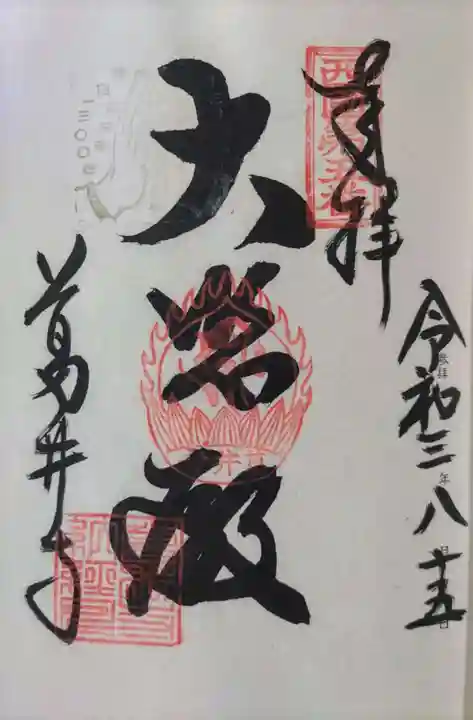 奉拝
西国第五番
令和三年八月十五日
参拝
大悲殿
葛井寺
一三〇〇年